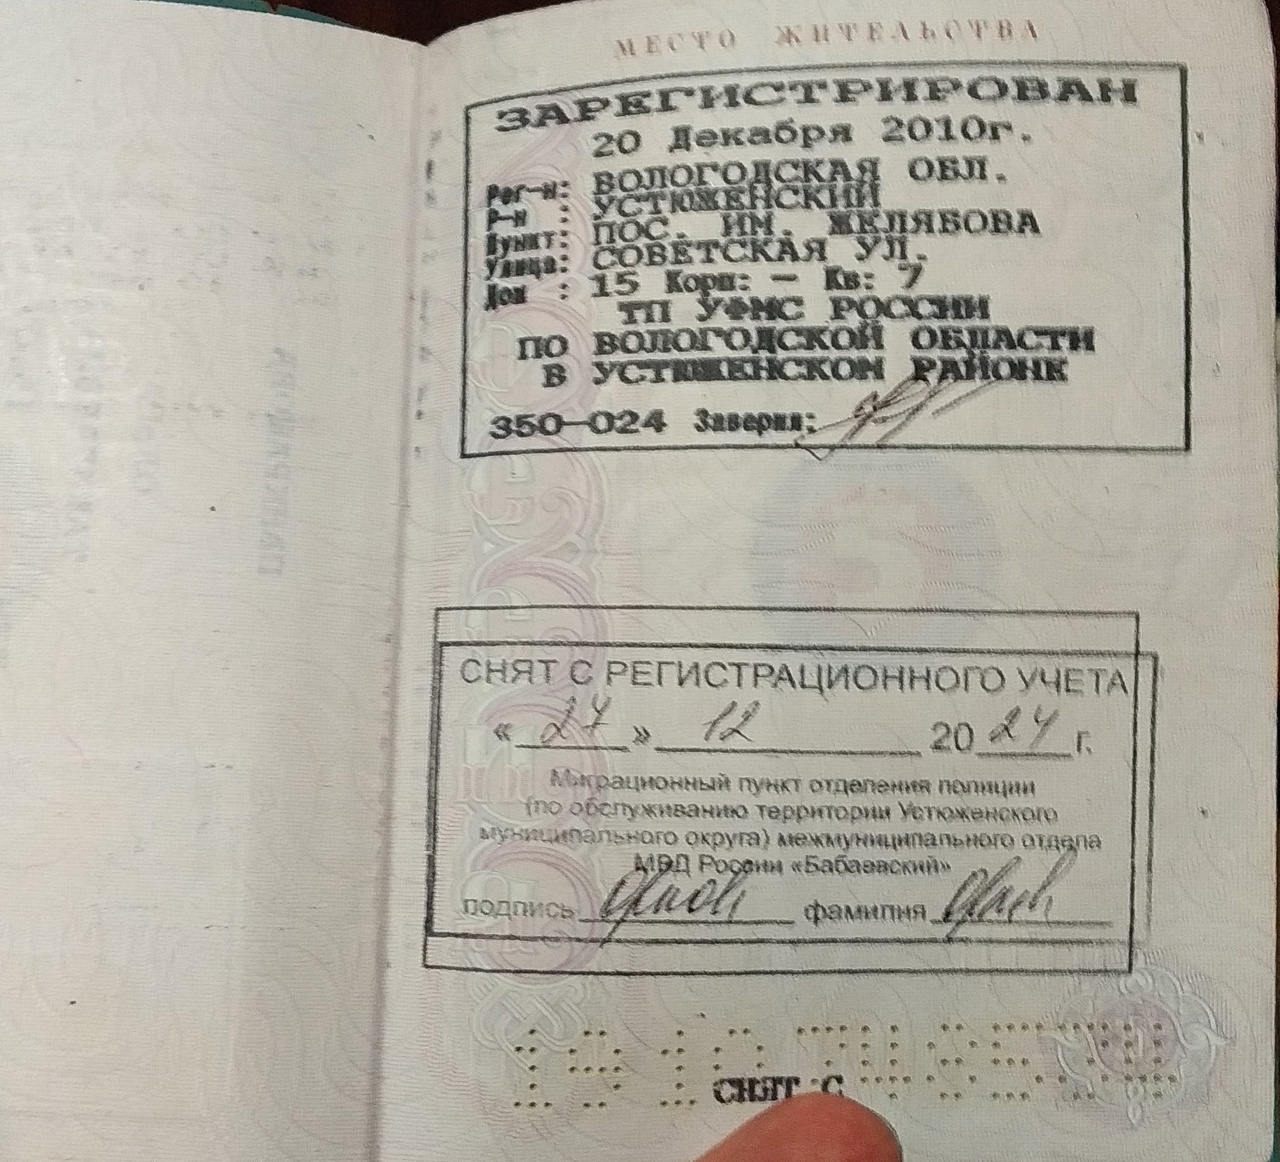 МЕСТО ЖИТЕЛЬСТВА
ЗАРЕГИСТРИРОВАН
20 Декабря 2010г.
Рег-н: ВОЛОГОДСКАЯ ОБЛ.
Р-н : УСТЮЖЕНСКИЙ
Пункт: ПОС. ИМ. ЖЕЛЯБОВА
Улица: СОВЕТСКАЯ УЛ.
Дом : 15 Корп: - Кв: 7
ТП УФМС РОССИИ
ПО ВОЛОГОДСКОЙ ОБЛАСТИ
В УСТЮЖЕНСКОМ РАЙОНЕ
350-024 Заверил:
СНЯТ С РЕГИСТРАЦИОННОГО УЧЕТА
« 27 » 12 2024 г.
Миграционный пункт отделения полиции
(по обслуживанию территории Устюженского
муниципального округа) межмуниципального отдела
МВД России «Бабаевский»
подпись фамилия
СНЯТ С